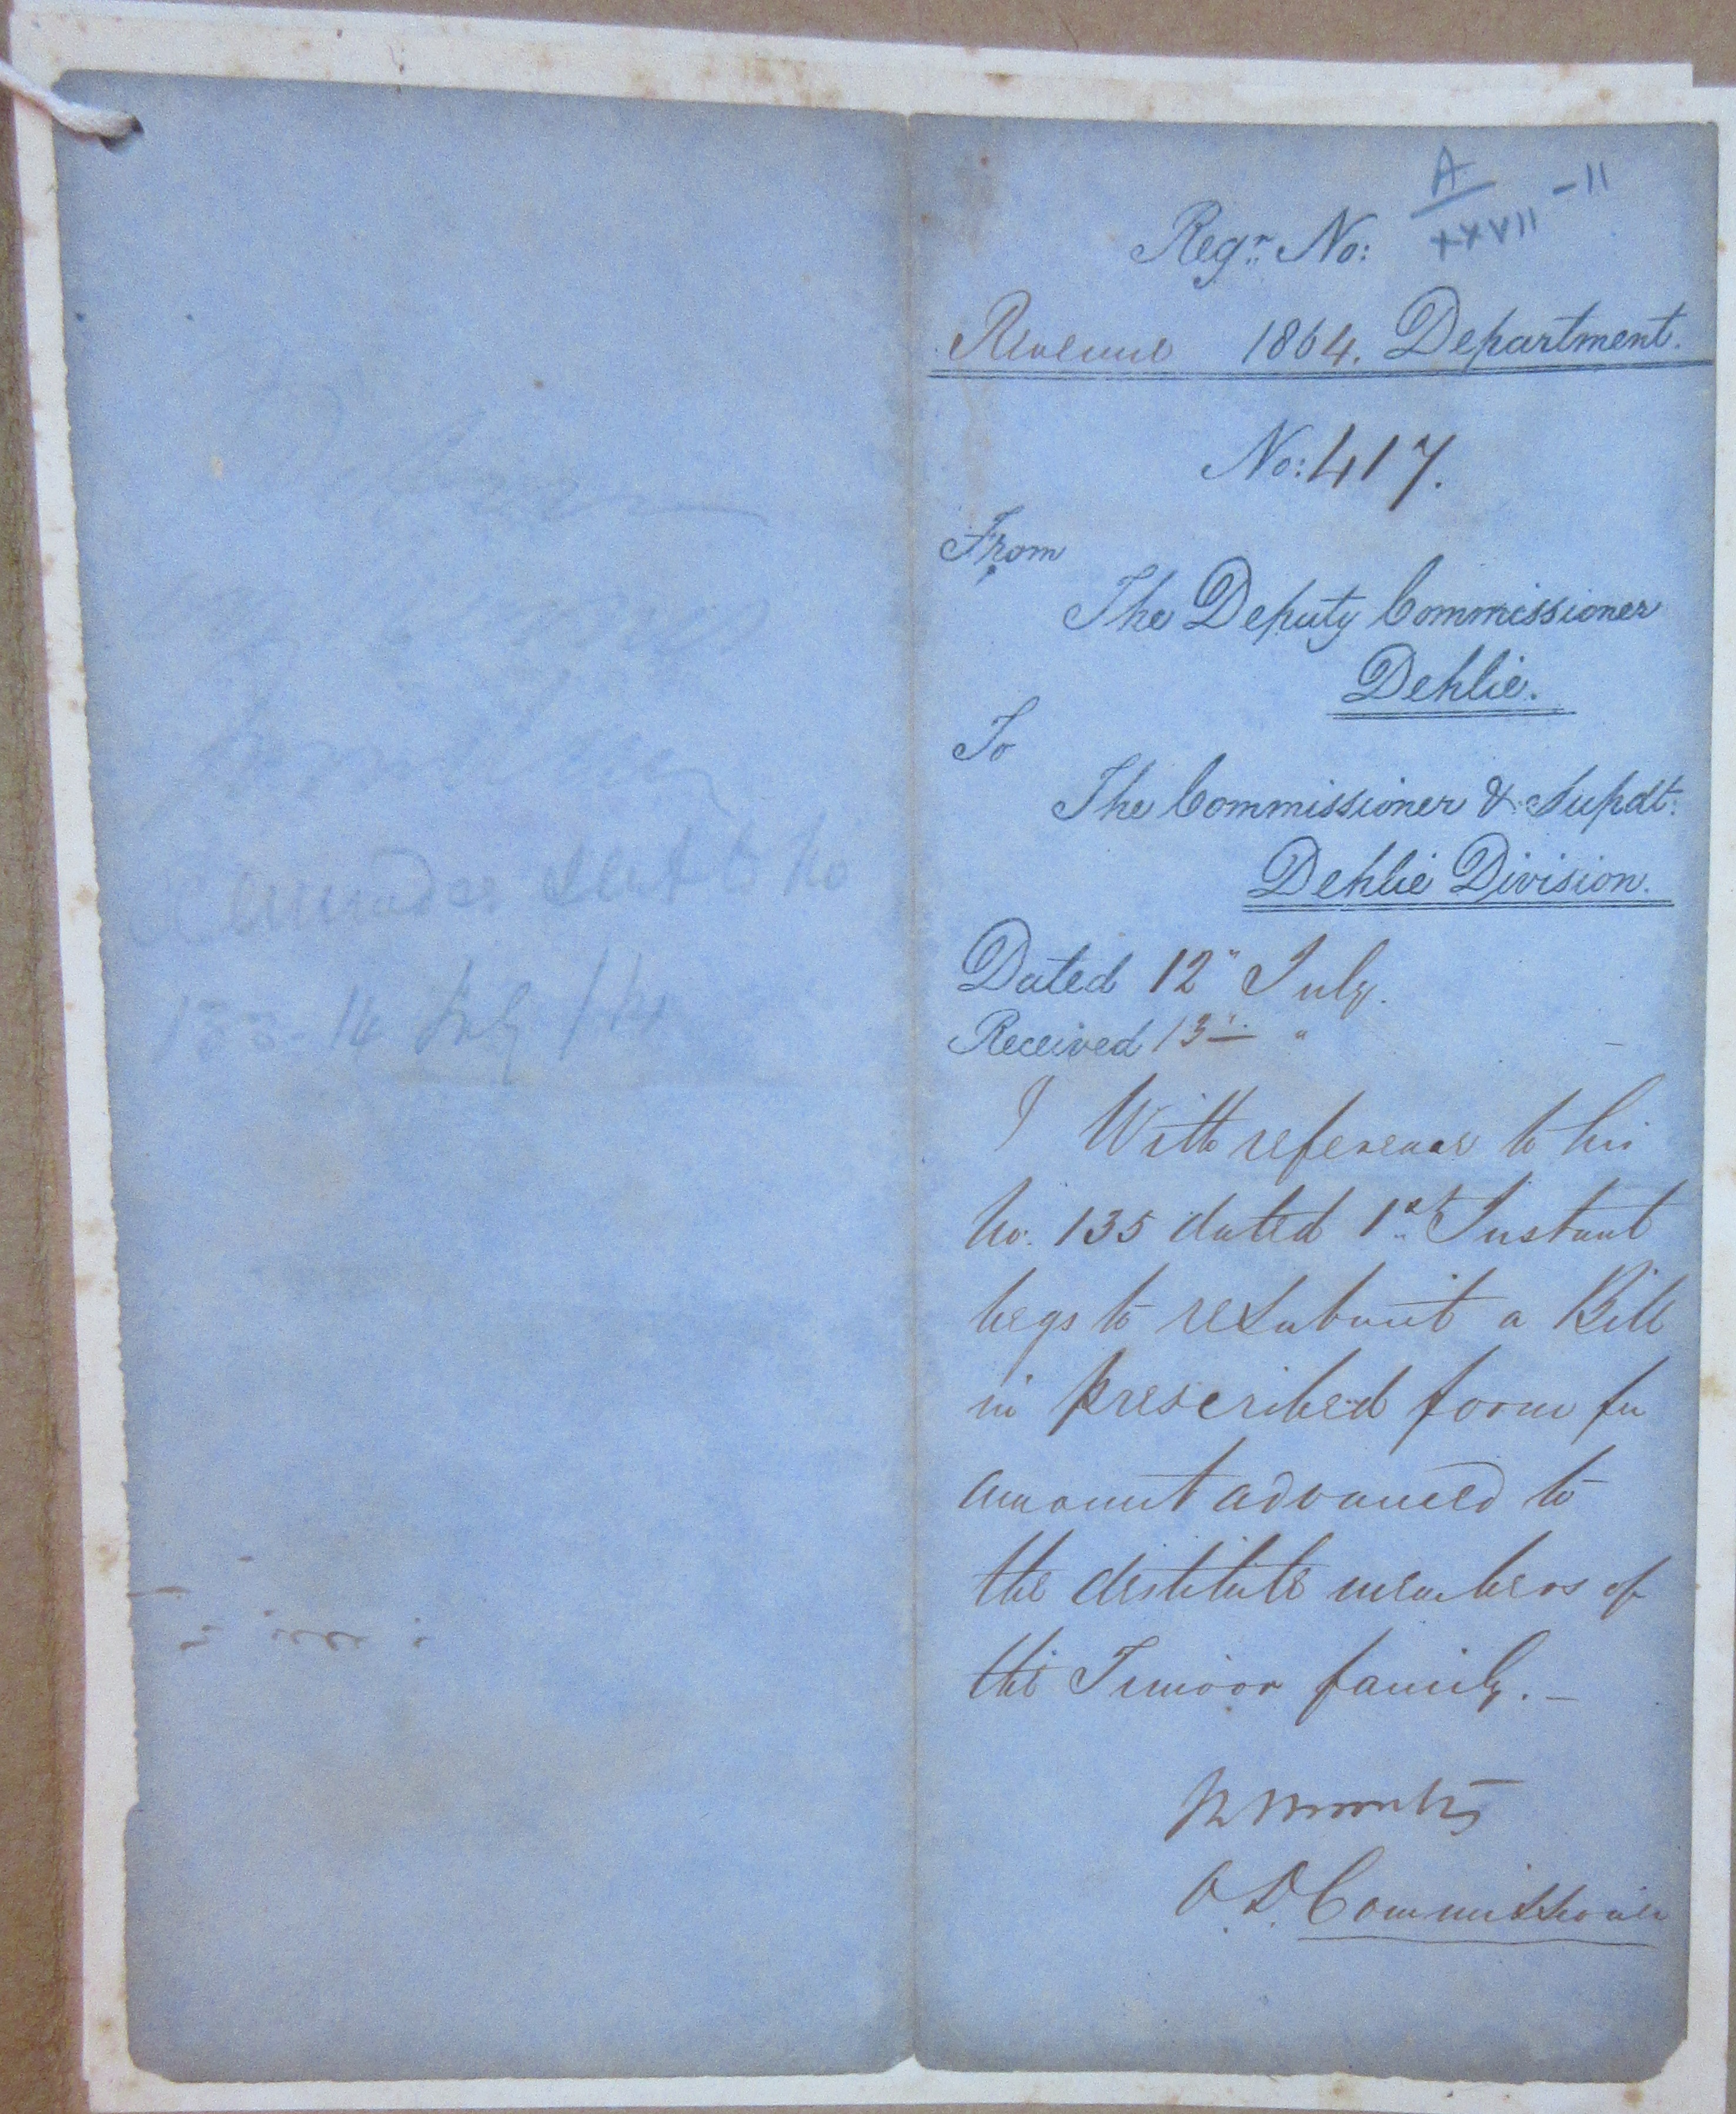 A
XXVII -11
Regr. No:
Revenue 1864. Department.
No: 417.
From
The Deputy Commissioner
Dehlie.
To
The Commissioner & Supdt:
Dehlie Division.
Dated 12" July.
Received 13" "
With reference to his
No. 135 dated 1st Instant
begs to resubmit a Bill
in prescribed form for
amount advanced to
the destitute members of
the Timoor family.
D Commissioner
14 July